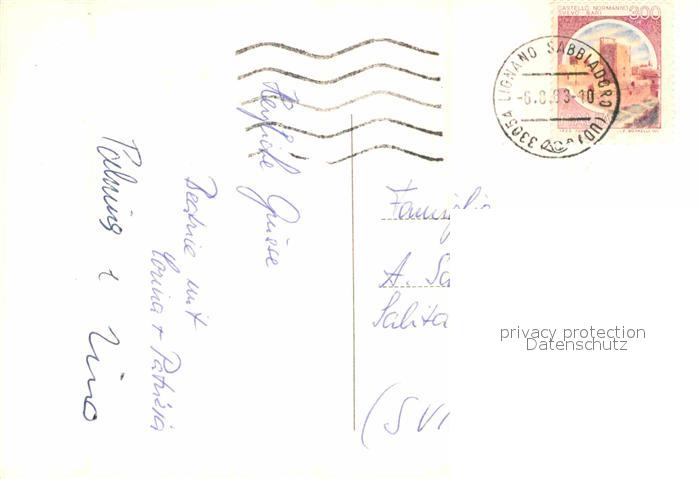 CASTELLO NORMANNO
SVEVO - BARI 300
33054 LIGNANO SABBIADORO (UD)
-6.8.83-10
Herzliche Grüsse
Beatrice mit
Corina + Patrizia
Palmina e Nino
Famiglia
A. Sa
Salita
(SVI
privacy protection
Datenschutz